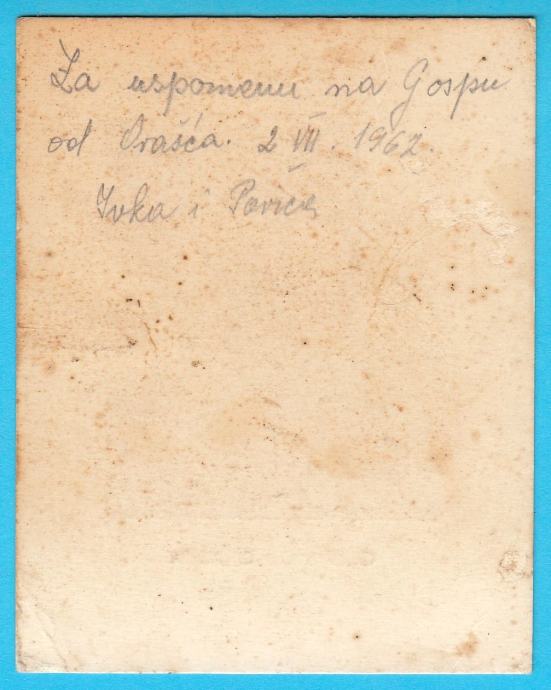 Za uspomenu na Gospu
od Orašća. 2 VII. 1962
Ivka i Pavica